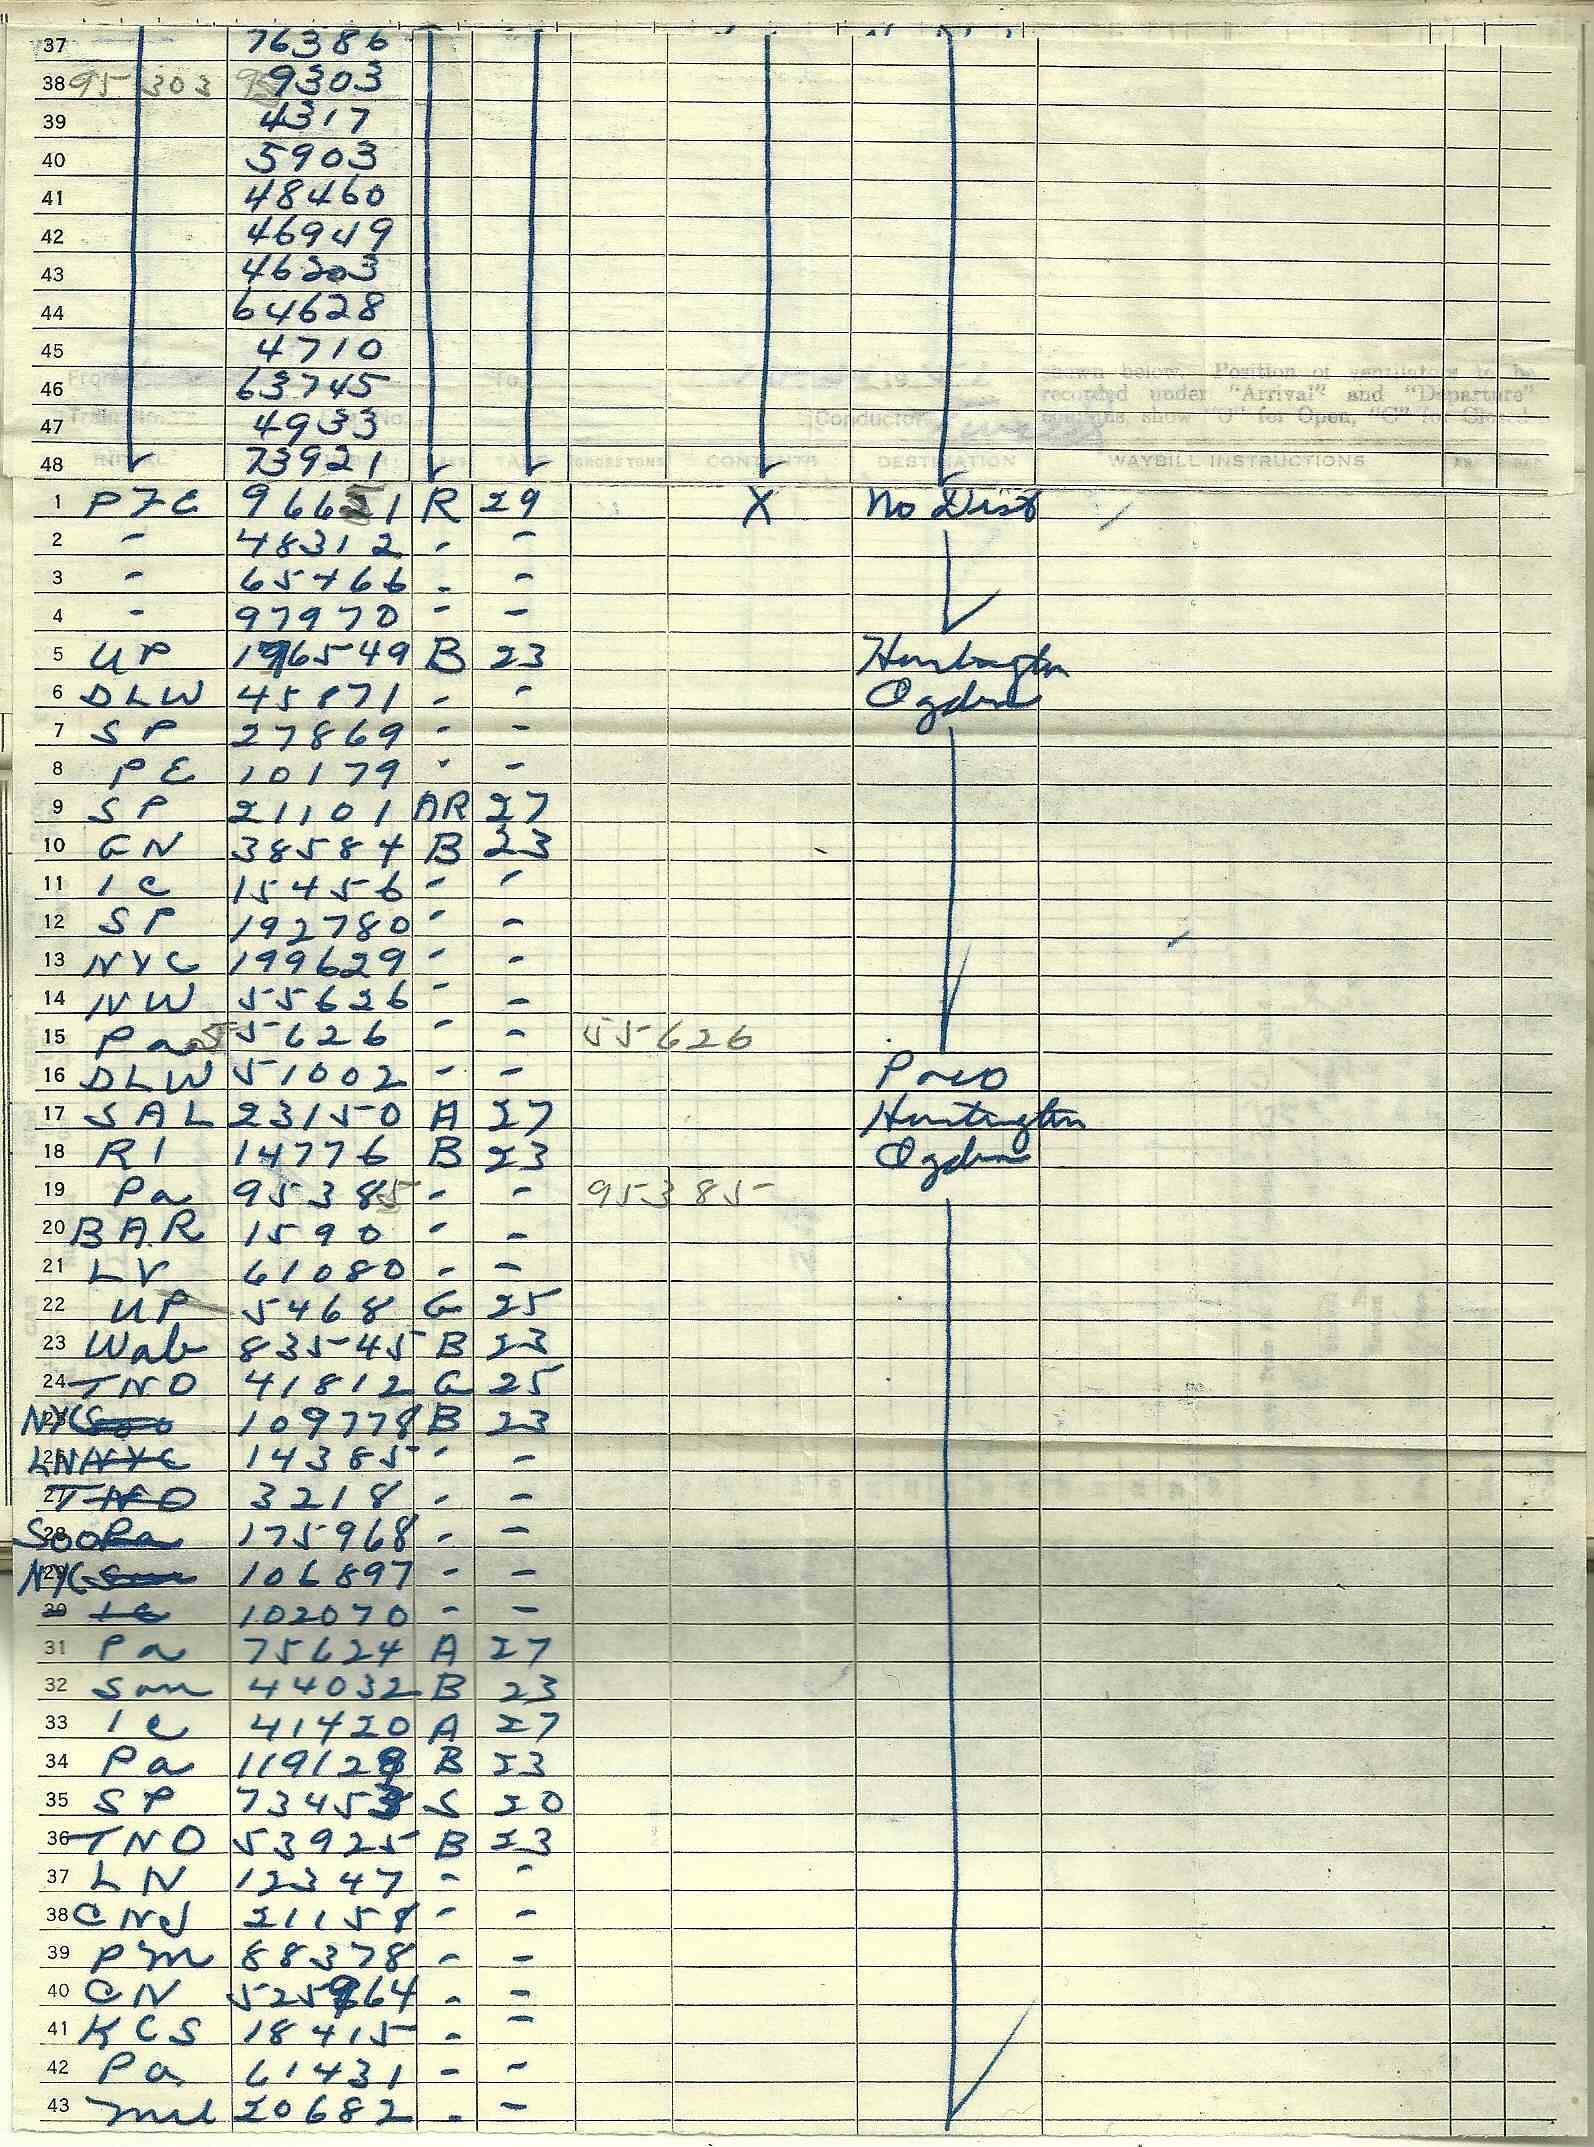 37 76386
38 95 303 9303
39 4317
40 5903
41 48460
42 46949
43 46203
44 64628
45 4710
46 63745
47 4933
48 73921
shown below. Position of ventilators to be
recorded under "Arrival" and "Departure"
columns, show "O" for Open, "C" for Closed
Conductor
INITIAL CONTENTS DESTINATION WAYBILL INSTRUCTIONS
1 PFE 96651 R 29 X No Dist
2 - 48312 - -
3 - 65466 - -
4 - 97970 - -
5 UP 196549 B 23 Huntington
6 DLW 45871 - - Ogden
7 SP 27869 - -
8 PE 10179 - -
9 SP 21101 AR 27
10 GN 38584 B 23
11 IC 15456 - -
12 SP 192780 - -
13 NYC 199629 - -
14 NW 55626 - -
15 Pa 55626 - - 55626
16 DLW 51002 - -
17 SAL 23150 A 27 Huntington
18 RI 14776 B 23 Ogden
19 Pa 95385 - - 95385
20 BAR 1590 - -
21 LV 61080 - -
22 UP 5468 G 25
23 Wab 83545 B 23
24 TNO 41812 G 25
25 NYC Soo 109778 B 23
26 LN NYC 14385 - -
27 TNO 3218 - -
28 Soo Pa 175968 - -
29 NYC 106897 - -
30 IC 102070 - -
31 Pa 75624 A 27
32 Sou 44032 B 23
33 IC 41420 A 27
34 Pa 119128 B 23
35 SP 73453 S 20
36 TNO 53925 B 23
37 LN 12347 - -
38 CNJ 21158 - -
39 PM 88378 - -
40 CN 525964 - -
41 KCS 18415 - -
42 Pa 61431 - -
43 Mil 20682 - -